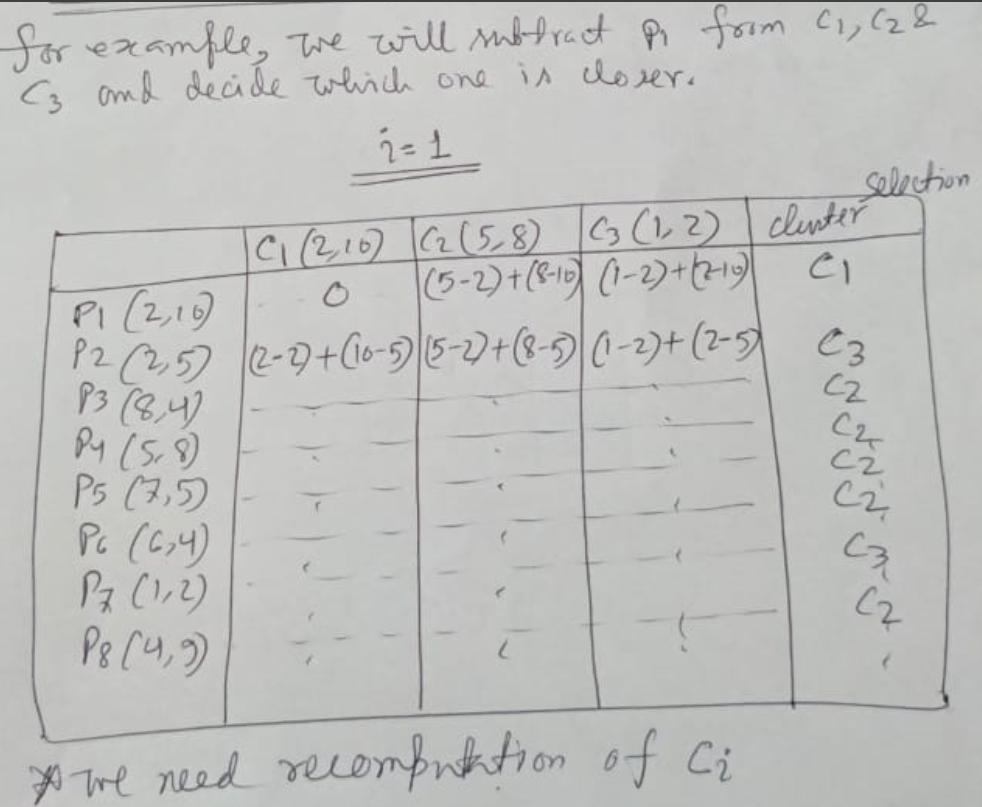 for example, we will subtract P1 from C1, C2 &
C3 and decide which one is closer.
i=1
selection
C1 (2,10) C2 (5,8) C3 (1,2) cluster
P1 (2,10) 0 (5-2)+(8-10) (1-2)+(2-10) C1
P2 (2,5) (2-2)+(10-5) (5-2)+(8-5) (1-2)+(2-5) C3
P3 (8,4) C2
P4 (5,8) C2
P5 (7,5) C2
P6 (6,4) C2
P7 (1,2) C3
P8 (4,9) C2
* we need recomputation of Ci